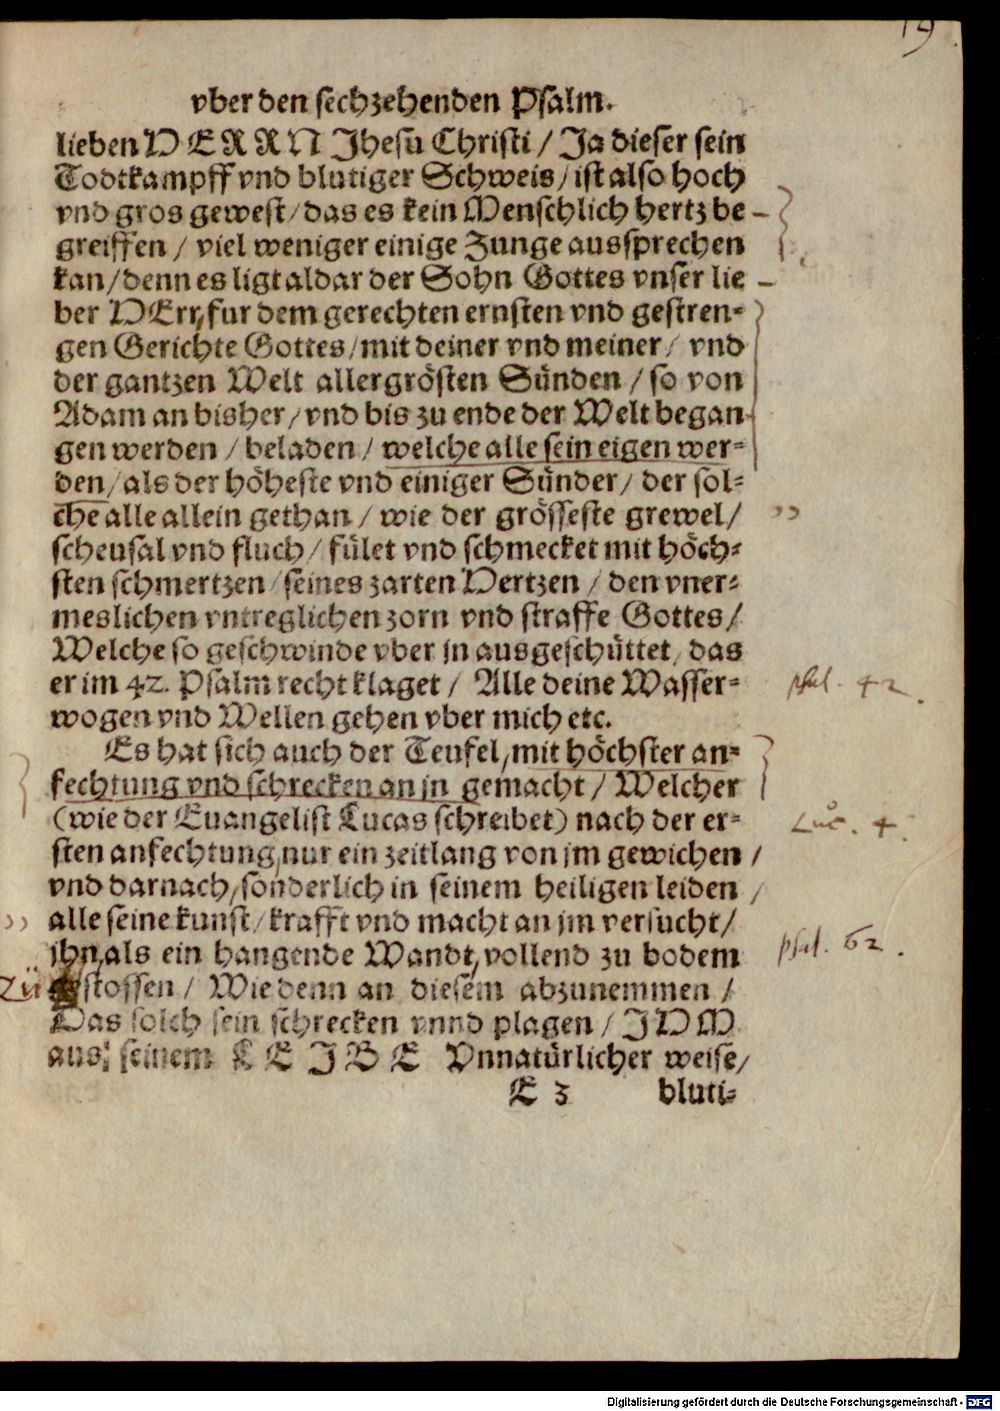 19
vber den sechzehenden Psalm.
lieben HERRN Jhesu Christi / Ja dieser sein
Todtkampff vnd blutiger Schweis / ist also hoch
vnd gros gewest / das es kein Menschlich hertz be-
greiffen / viel weniger einige Zunge aussprechen
kan / denn es ligt aldar der Sohn Gottes vnser lie-
ber HErr / fur dem gerechten ernsten vnd gestren-
gen Gerichte Gottes / mit deiner vnd meiner / vnd
der gantzen Welt allergrösten Sünden / so von
Adam an bisher / vnd bis zu ende der Welt began-
gen werden / beladen / welche alle sein eigen wer-
den / als der höheste vnd einiger Sünder / der sol-
che alle allein gethan / wie der grösseste grewel /
scheusal vnd fluch / fület vnd schmecket mit höch-
sten schmertzen / seines zarten Hertzen / den vner-
meslichen vntreglichen zorn vnd straffe Gottes /
Welche so geschwinde vber jn ausgeschüttet / das
er im 42. Psalm recht klaget / Alle deine Wasser-
wogen vnd Wellen gehen vber mich etc.
psal. 42.
Es hat sich auch der Teufel / mit höchster an-
fechtung vnd schrecken an jn gemacht / Welcher
(wie der Euangelist Lucas schreibet) nach der er-
Luc. 4.
sten anfechtung / nur ein zeitlang von jm gewichen /
vnd darnach / sonderlich in seinem heiligen leiden /
alle seine kunst / krafft vnd macht an jm versucht /
jhn / als ein hangende Wandt / vollend zu bodem
psal. 62.
Zü stossen / Wie denn an diesem abzunemmen /
Das solch sein schrecken vnnd plagen / JHM
aus seinem LEJBE Vnnatürlicher weise /
E 3 bluti-
Digitalisierung gefördert durch die Deutsche Forschungsgemeinschaft - DFG